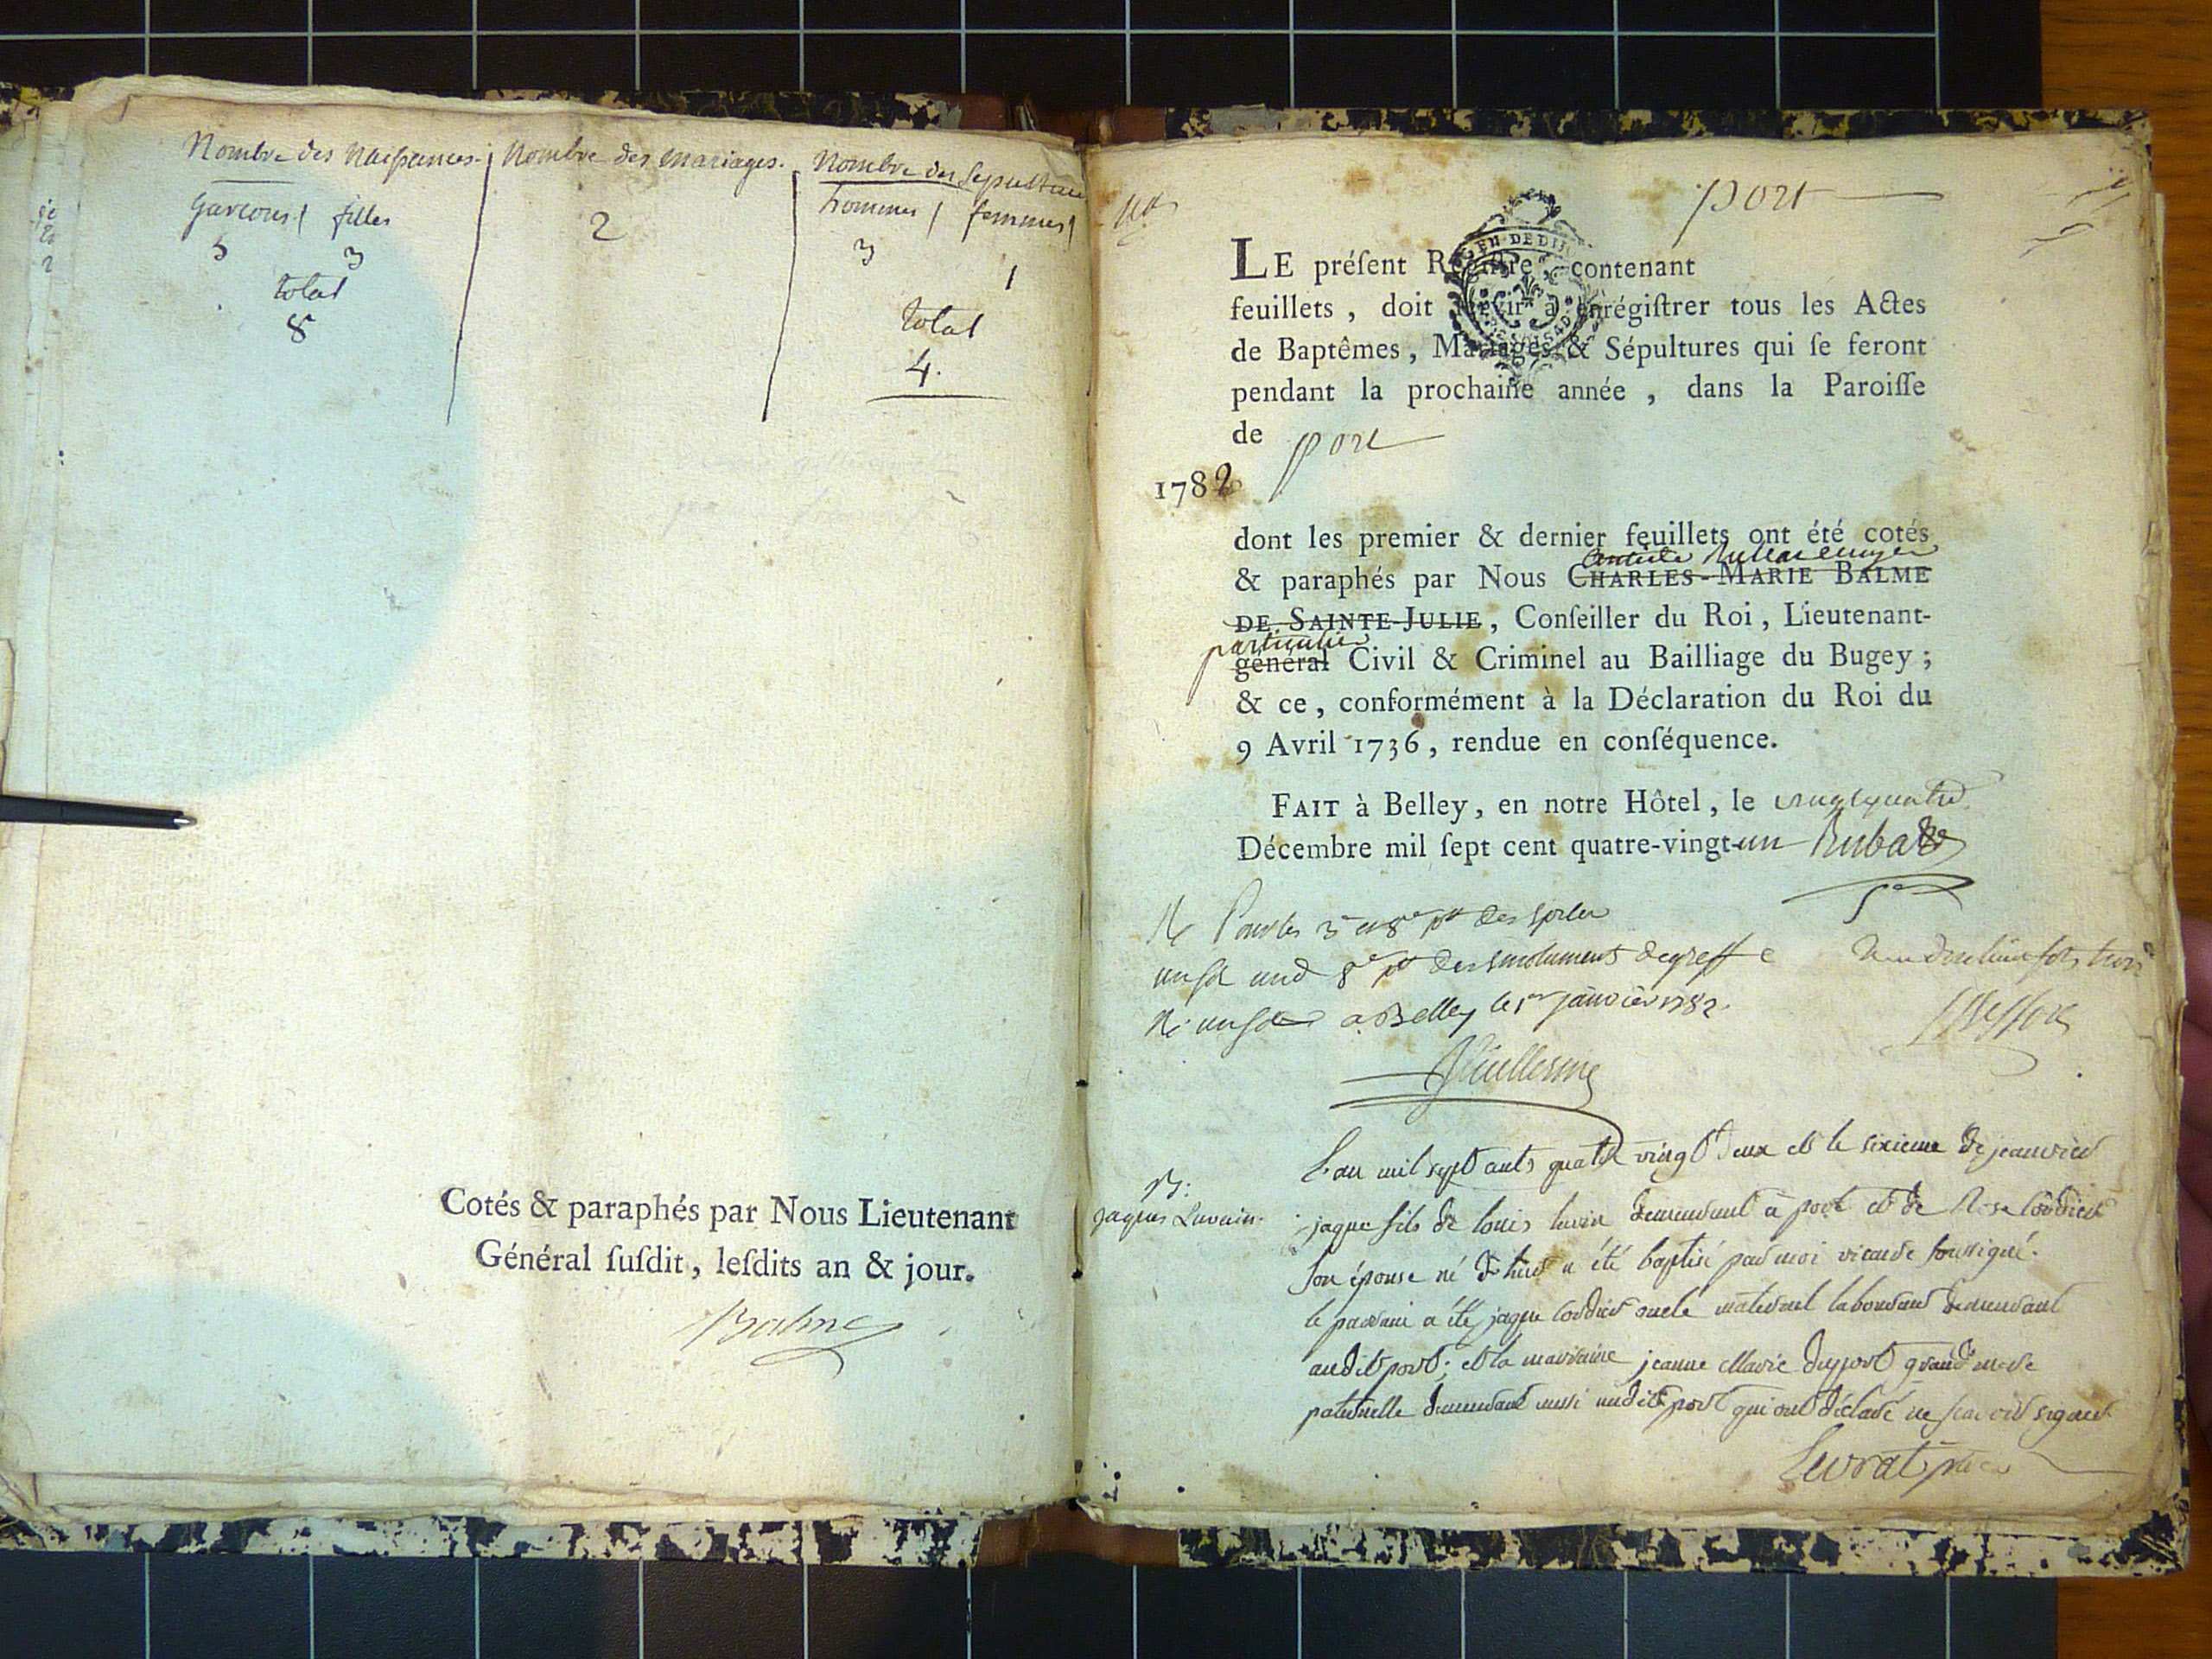 Nombre des Naissances. Nombre des mariages. Nombre des Sepulture
Garcons / filles
5 3
total
8
2
hommes / femmes
3 1
total
4.
Cotés & paraphés par Nous Lieutenant
Général ſuſdit, leſdits an & jour.
Balme
port
LE préſent Regiſtre, contenant
feuillets, doit ſervir à enrégiſtrer tous les Actes
de Baptêmes, Mariages & Sépultures qui ſe feront
pendant la prochaine année, dans la Paroiſſe
de port
1782
dont les premier & dernier feuillets ont été cotés
& paraphés par Nous CHARLES-MARIE BALME
DE SAINTE-JULIE, Conſeiller du Roi, Lieutenant-
particulier
général Civil & Criminel au Bailliage du Bugey;
& ce, conformément à la Déclaration du Roi du
9 Avril 1736, rendue en conſéquence.
FAIT à Belley, en notre Hôtel, le vingtquatre
Décembre mil ſept cent quatre-vingt-un
a Belley le 1er janvier 1782.
L'an mil sept cents quatre vingt deux et le sixieme de jeanvier
B:
jaques Luvain.
jaque fils de louis luvin demeurant à port et de Rose Cordier
son épouse né d'hier a été baptisé par moi vicaire soussigné.
le parrain a été jaque Cordier oncle maternel laboureur demeurant
audit port; et la marraine jeanne Marie duport grand mere
paternelle demeurant aussi audit port qui ont déclaré ne scavoir signer
Levrat